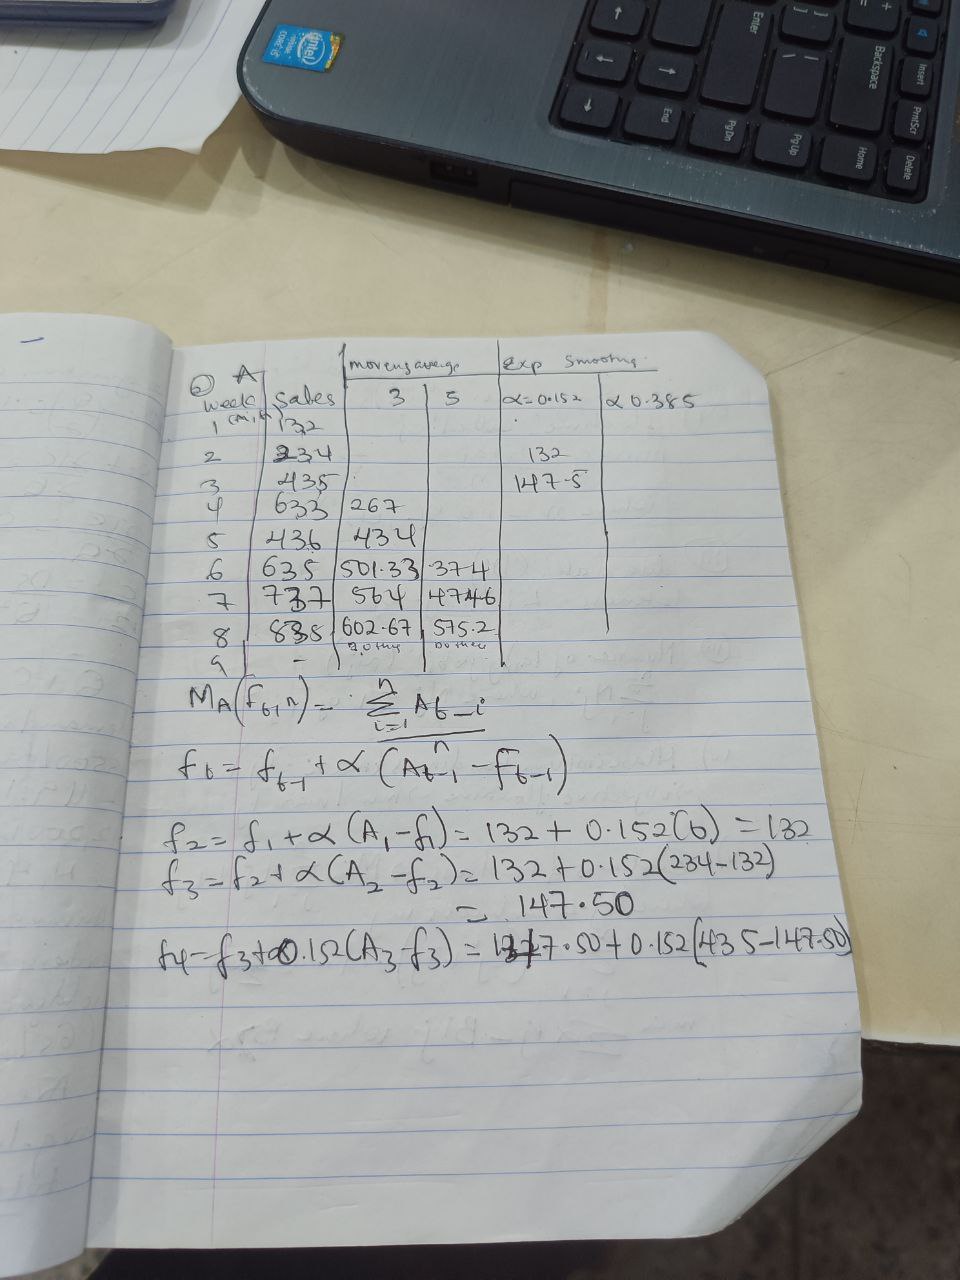 intel
inside
CORE i5
Enter
Backspace
Insert
PrntScr
Delete
Home
PgUp
PgDn
End
6 A
moveng average Exp Smooting
week Sales 3 5 α=0.152 α 0.385
1 132
2 234 132
3 435 147.5
4 633 267
5 436 434
6 635 501.33 374
7 737 564 474.6
8 835 602.67 575.2
9 -
MA(ft, n) = n Σ i=1 At-i
n
ft = ft-1 + α (At-1 - Ft-1)
f2 = f1 + α (A1 - f1) = 132 + 0.152(0) = 132
f3 = f2 + α (A2 - f2) = 132 + 0.152(234-132)
= 147.50
f4 = f3 + 0.152 (A3 - f3) = 147.50 + 0.152 (435-147.50)